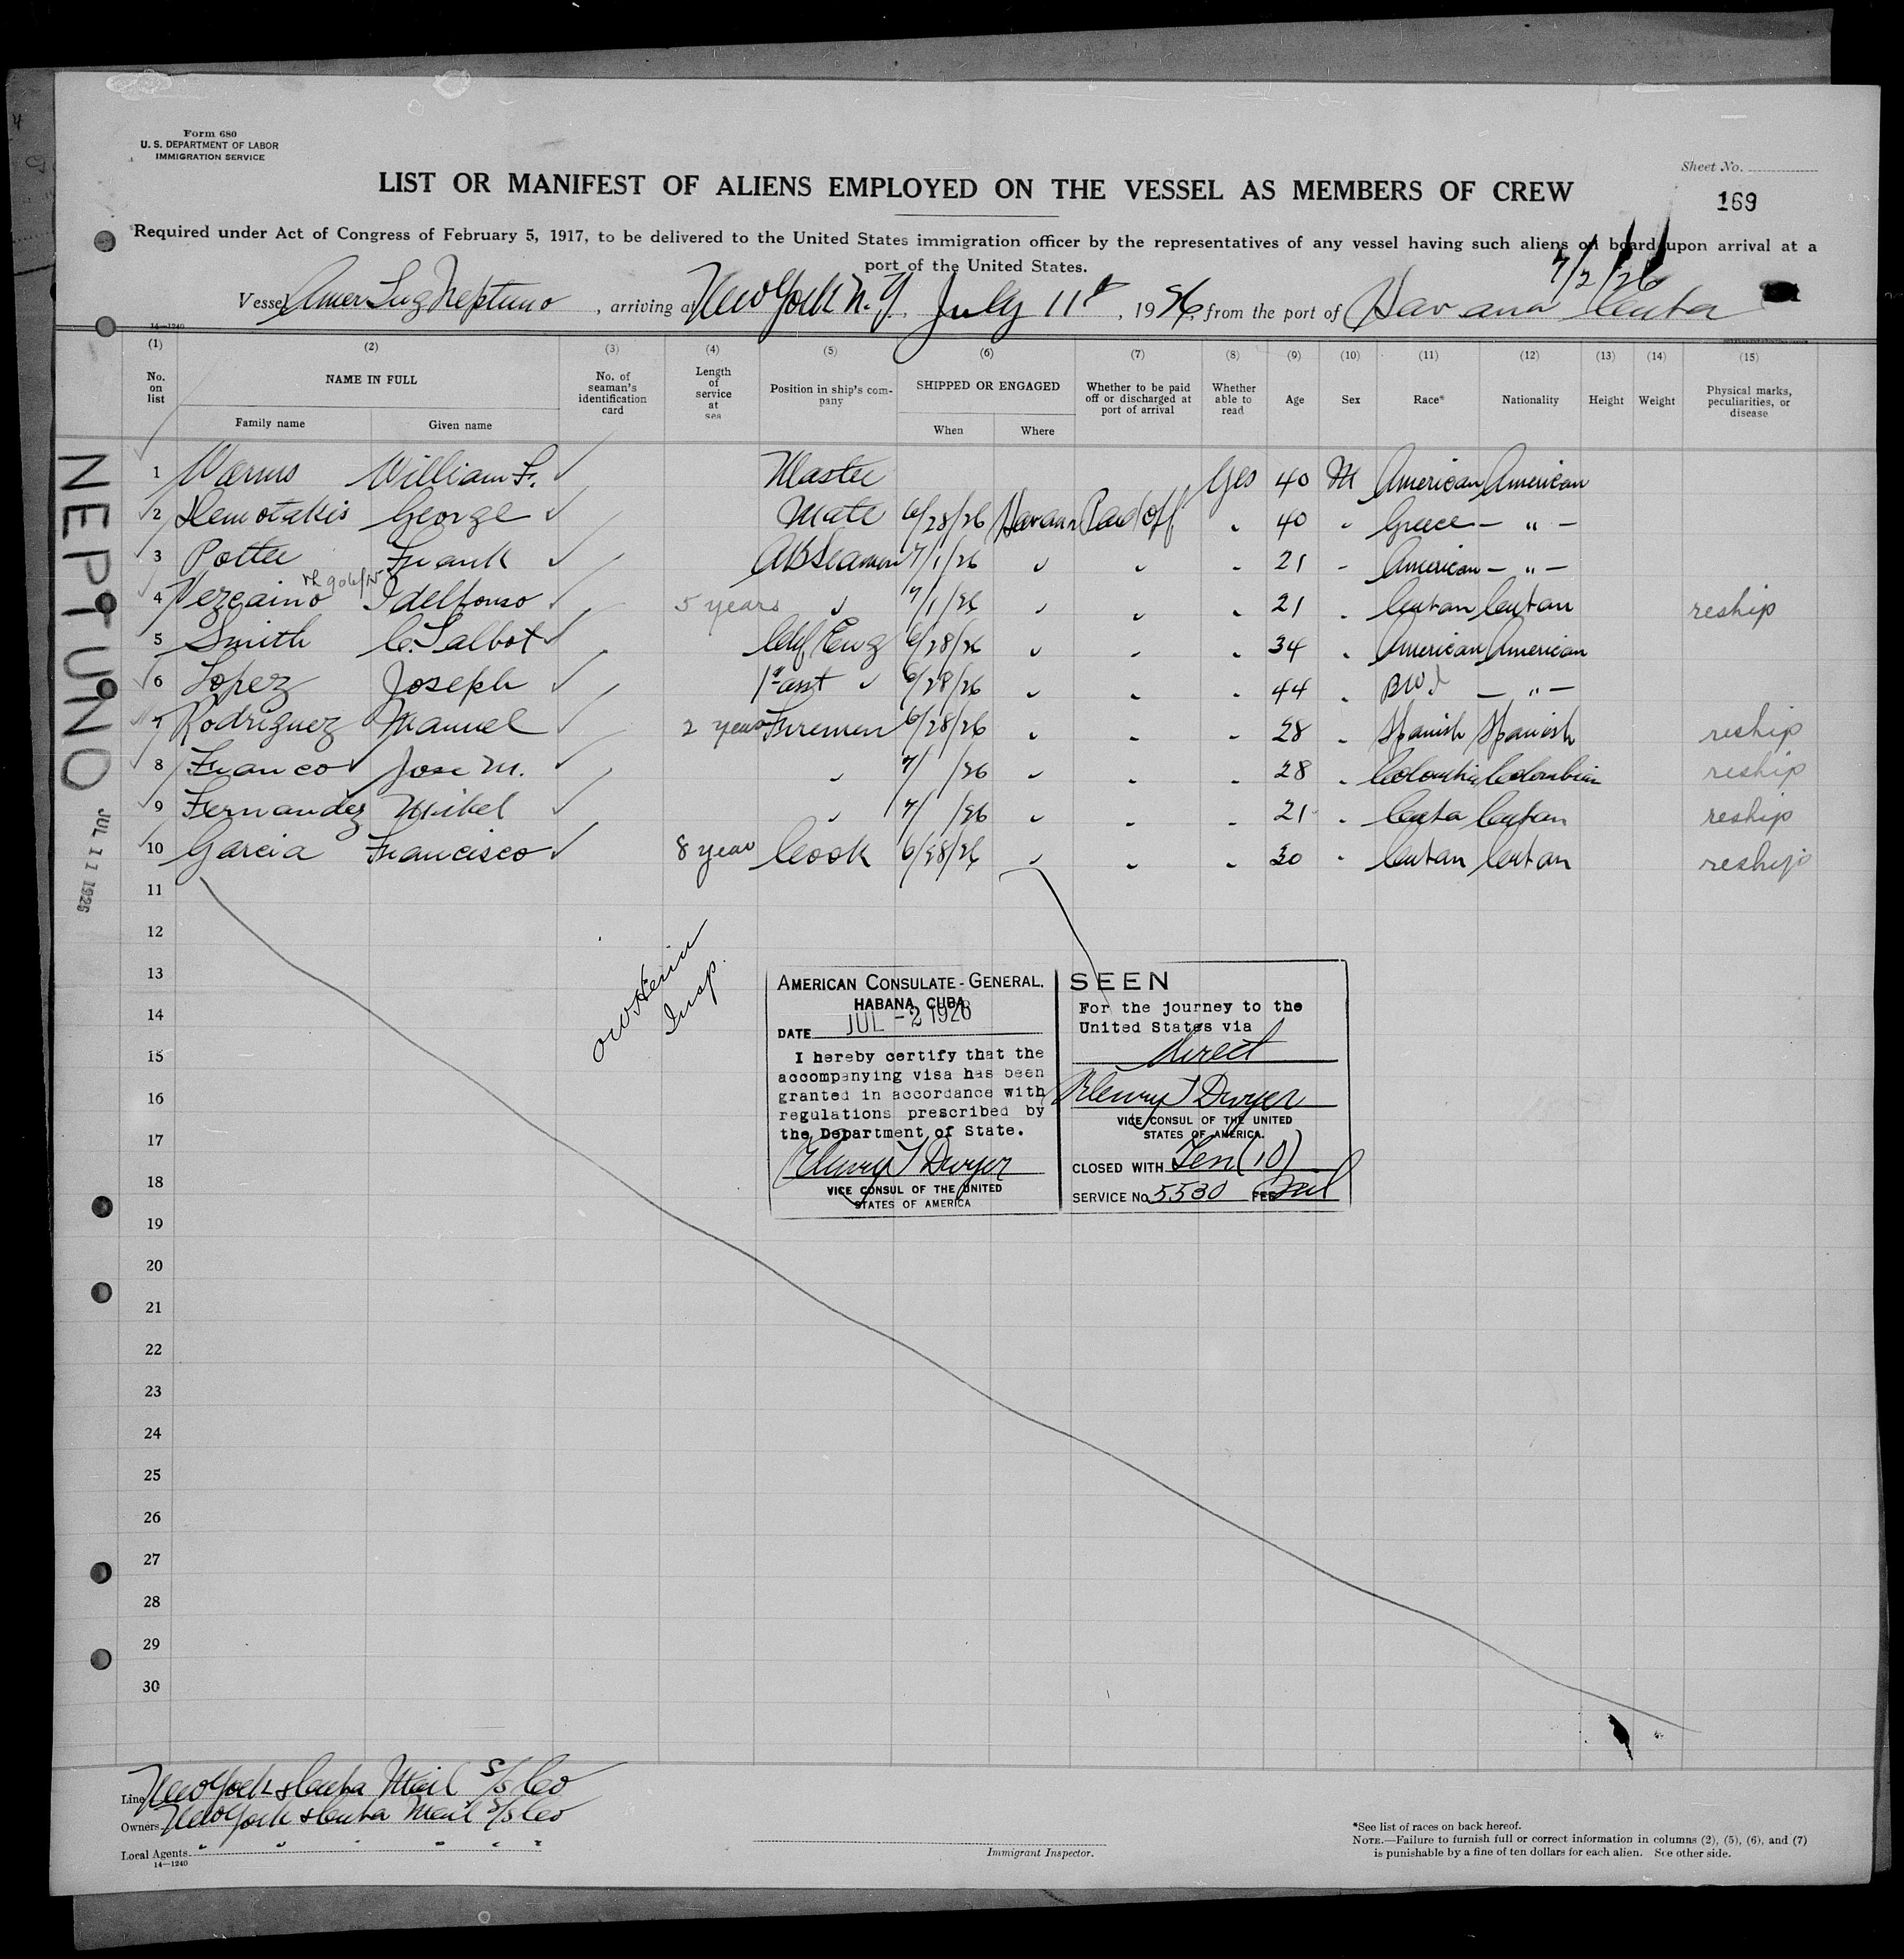 Form 680
U. S. DEPARTMENT OF LABOR
IMMIGRATION SERVICE
Sheet No.
169
LIST OR MANIFEST OF ALIENS EMPLOYED ON THE VESSEL AS MEMBERS OF CREW
Required under Act of Congress of February 5, 1917, to be delivered to the United States immigration officer by the representatives of any vessel having such aliens on board upon arrival at a
port of the United States.
7/2/26
Vessel Amer Tug Neptuno, arriving at New York N.Y., July 11th, 1926, from the port of Havana Cuba
14—1240
(1) (2) (3) (4) (5) (6) (7) (8) (9) (10) (11) (12) (13) (14) (15)
No. on list NAME IN FULL No. of seaman's identification card Length of service at sea Position in ship's company SHIPPED OR ENGAGED Whether to be paid off or discharged at port of arrival Whether able to read Age Sex Race* Nationality Height Weight Physical marks, peculiarities, or disease
Family name Given name When Where
1 Warms William F. Master Yes 40 M American American
2 Demotakis George Mate 6/28/26 Havana Paid off " 40 " Greece — " —
3 Potter Frank AB Seaman 7/1/26 " " " 21 " American — " —
4 Idelfonso 5 years " 7/1/26 " " " 21 " Cuban Cuban reship
5 Smith C. Talbot Chf Eng 6/28/26 " " " 34 " American American
6 Lopez Joseph 1st asst " 6/28/26 " " " 44 " BWI — " —
7 Rodriguez Manuel 2 years Firemen 6/28/26 " " " 28 " Spanish Spanish reship
8 Franco Jose M. " 7/ /26 " " " 28 " Colombia Colombian reship
9 Fernandez " 7/ /26 " " " 21 " Cuba Cuban reship
10 Garcia Francisco 8 year Cook 6/28/26 " " " 30 " Cuban Cuban reship
11
12
13
14
15
16
17
18
19
20
21
22
23
24
25
26
27
28
29
30
NEPTUNO
JUL 11 1926
Insp.
AMERICAN CONSULATE-GENERAL.
HABANA, CUBA.
DATE JUL -2 1926
I hereby certify that the
accompanying visa has been
granted in accordance with
regulations prescribed by
the Department of State.
Henry T Dwyer
VICE CONSUL OF THE UNITED
STATES OF AMERICA
SEEN
For the journey to the
United States via
direct
Henry T Dwyer
VICE CONSUL OF THE UNITED
STATES OF AMERICA.
CLOSED WITH Ten (10)
SERVICE No. 5530 FEE Nil
Line New York & Cuba Mail S/S Co
Owners New York & Cuba Mail S/S Co
Local Agents " " " " " "
14—1240
Immigrant Inspector.
*See list of races on back hereof.
NOTE.—Failure to furnish full or correct information in columns (2), (5), (6), and (7)
is punishable by a fine of ten dollars for each alien. See other side.